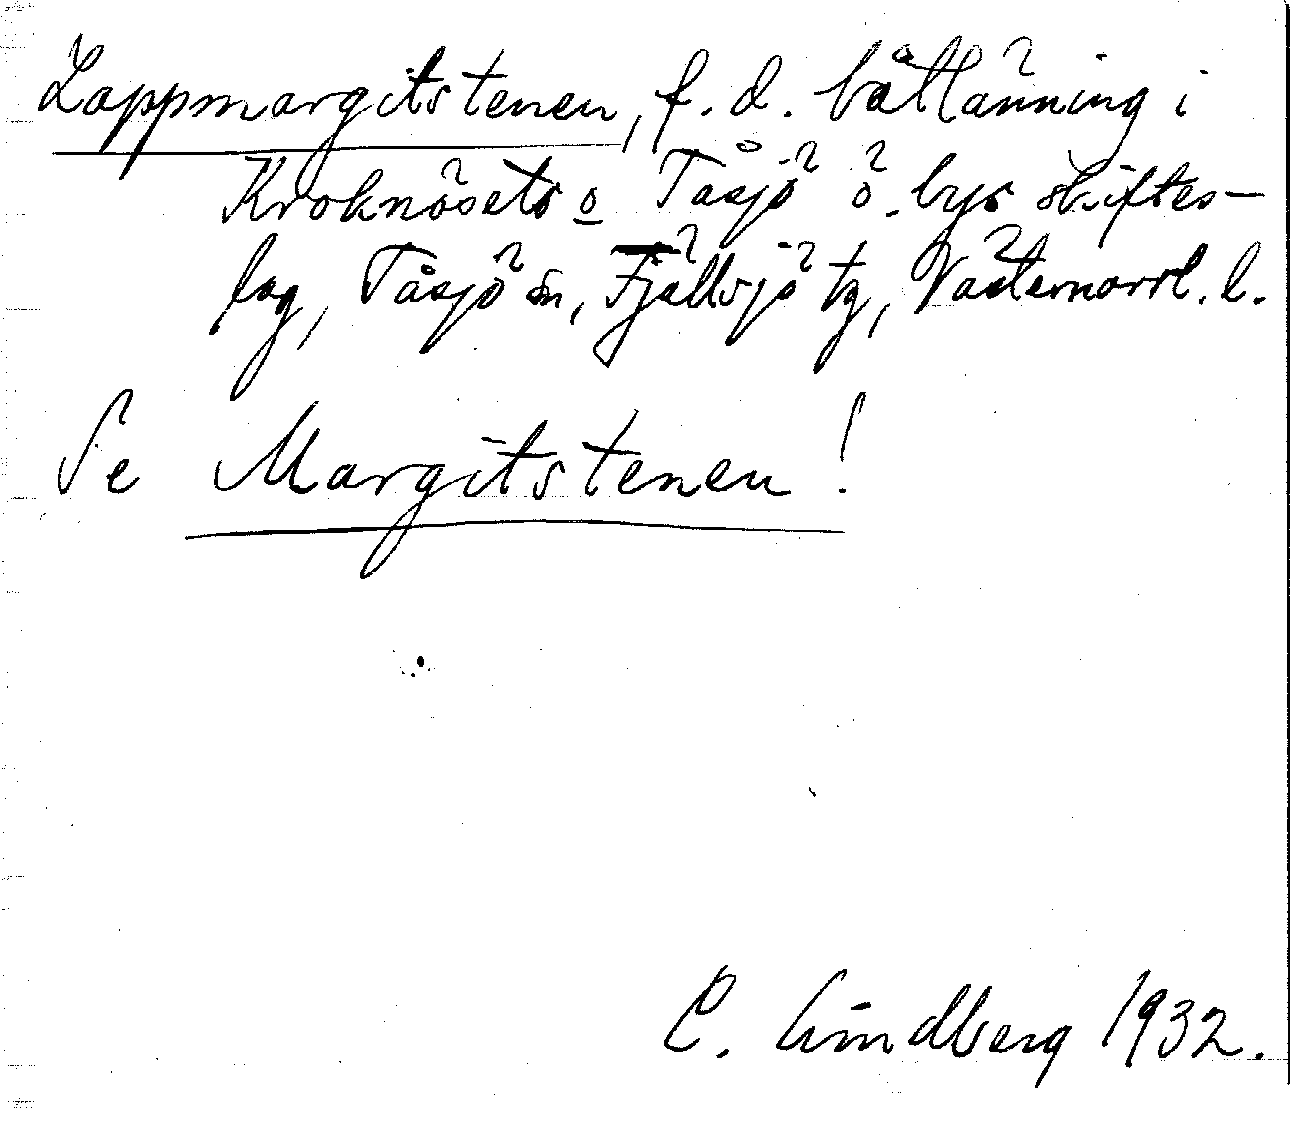 Lappmargitstenen, f.d. båtlänning i
Kroknösets o Tåsjö ö. bys skiftes-
lag, Tåsjö sn, Fjällsjö tg, Västernorrl. l.
Se Margitstenen!
C. Lindberg 1932.